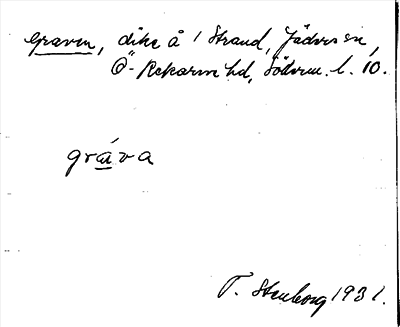 Graven, dike å 1 Strand, Jäders sn,
Ö-Rekarne hd, Söderm. l. 10.
gráva
T. Stenborg 1931.